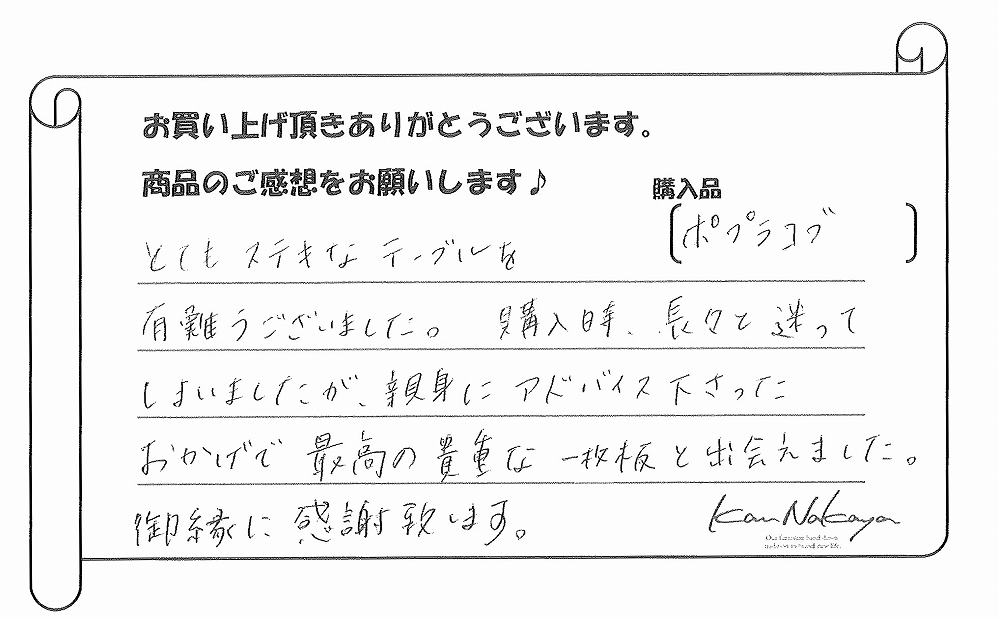 お買い上げ頂きありがとうございます。
商品のご感想をお願いします♪
購入品
ポプラコブ
とてもステキなテーブルを
有難うございました。 購入時、長々と迷って
しまいましたが、親身にアドバイス下さった
おかげで最高の貴重な一枚板と出会えました。
御縁に感謝致します。
Kan Nakaya